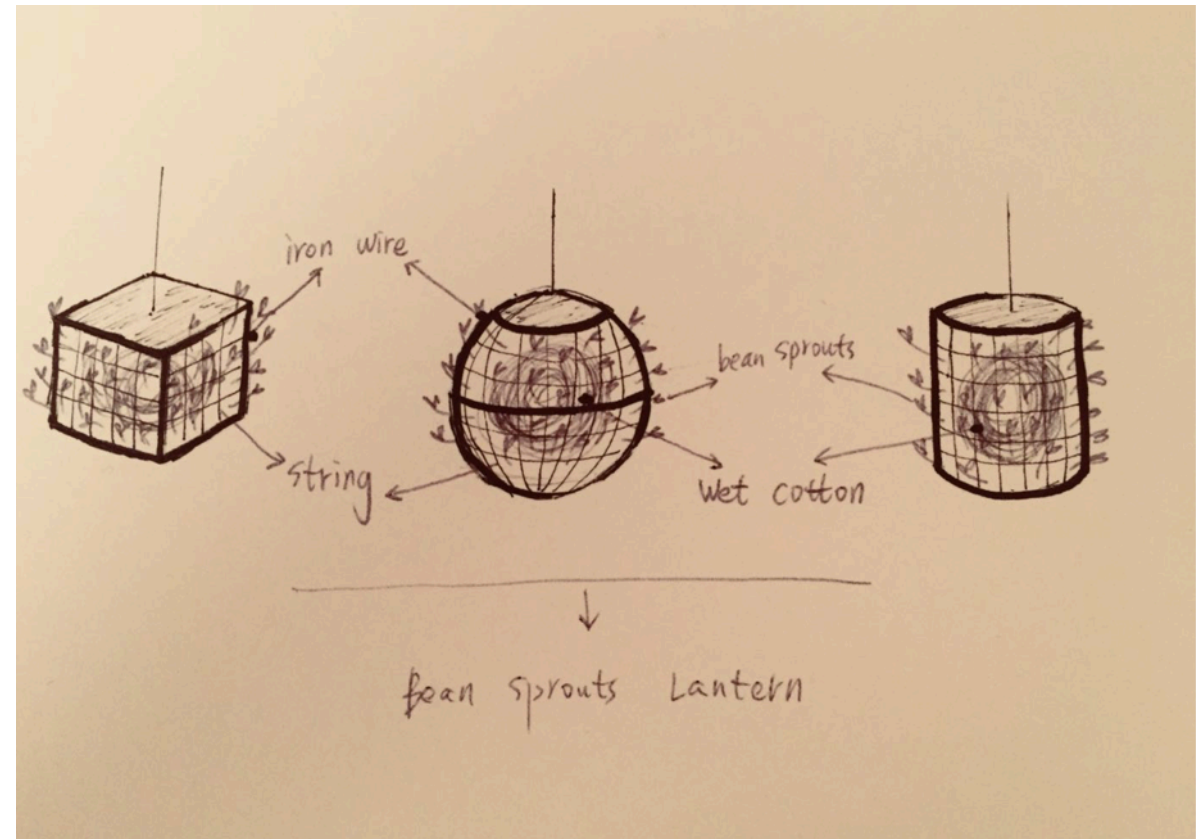 iron wire
bean sprouts
string
Wet cotton
Bean sprouts Lantern